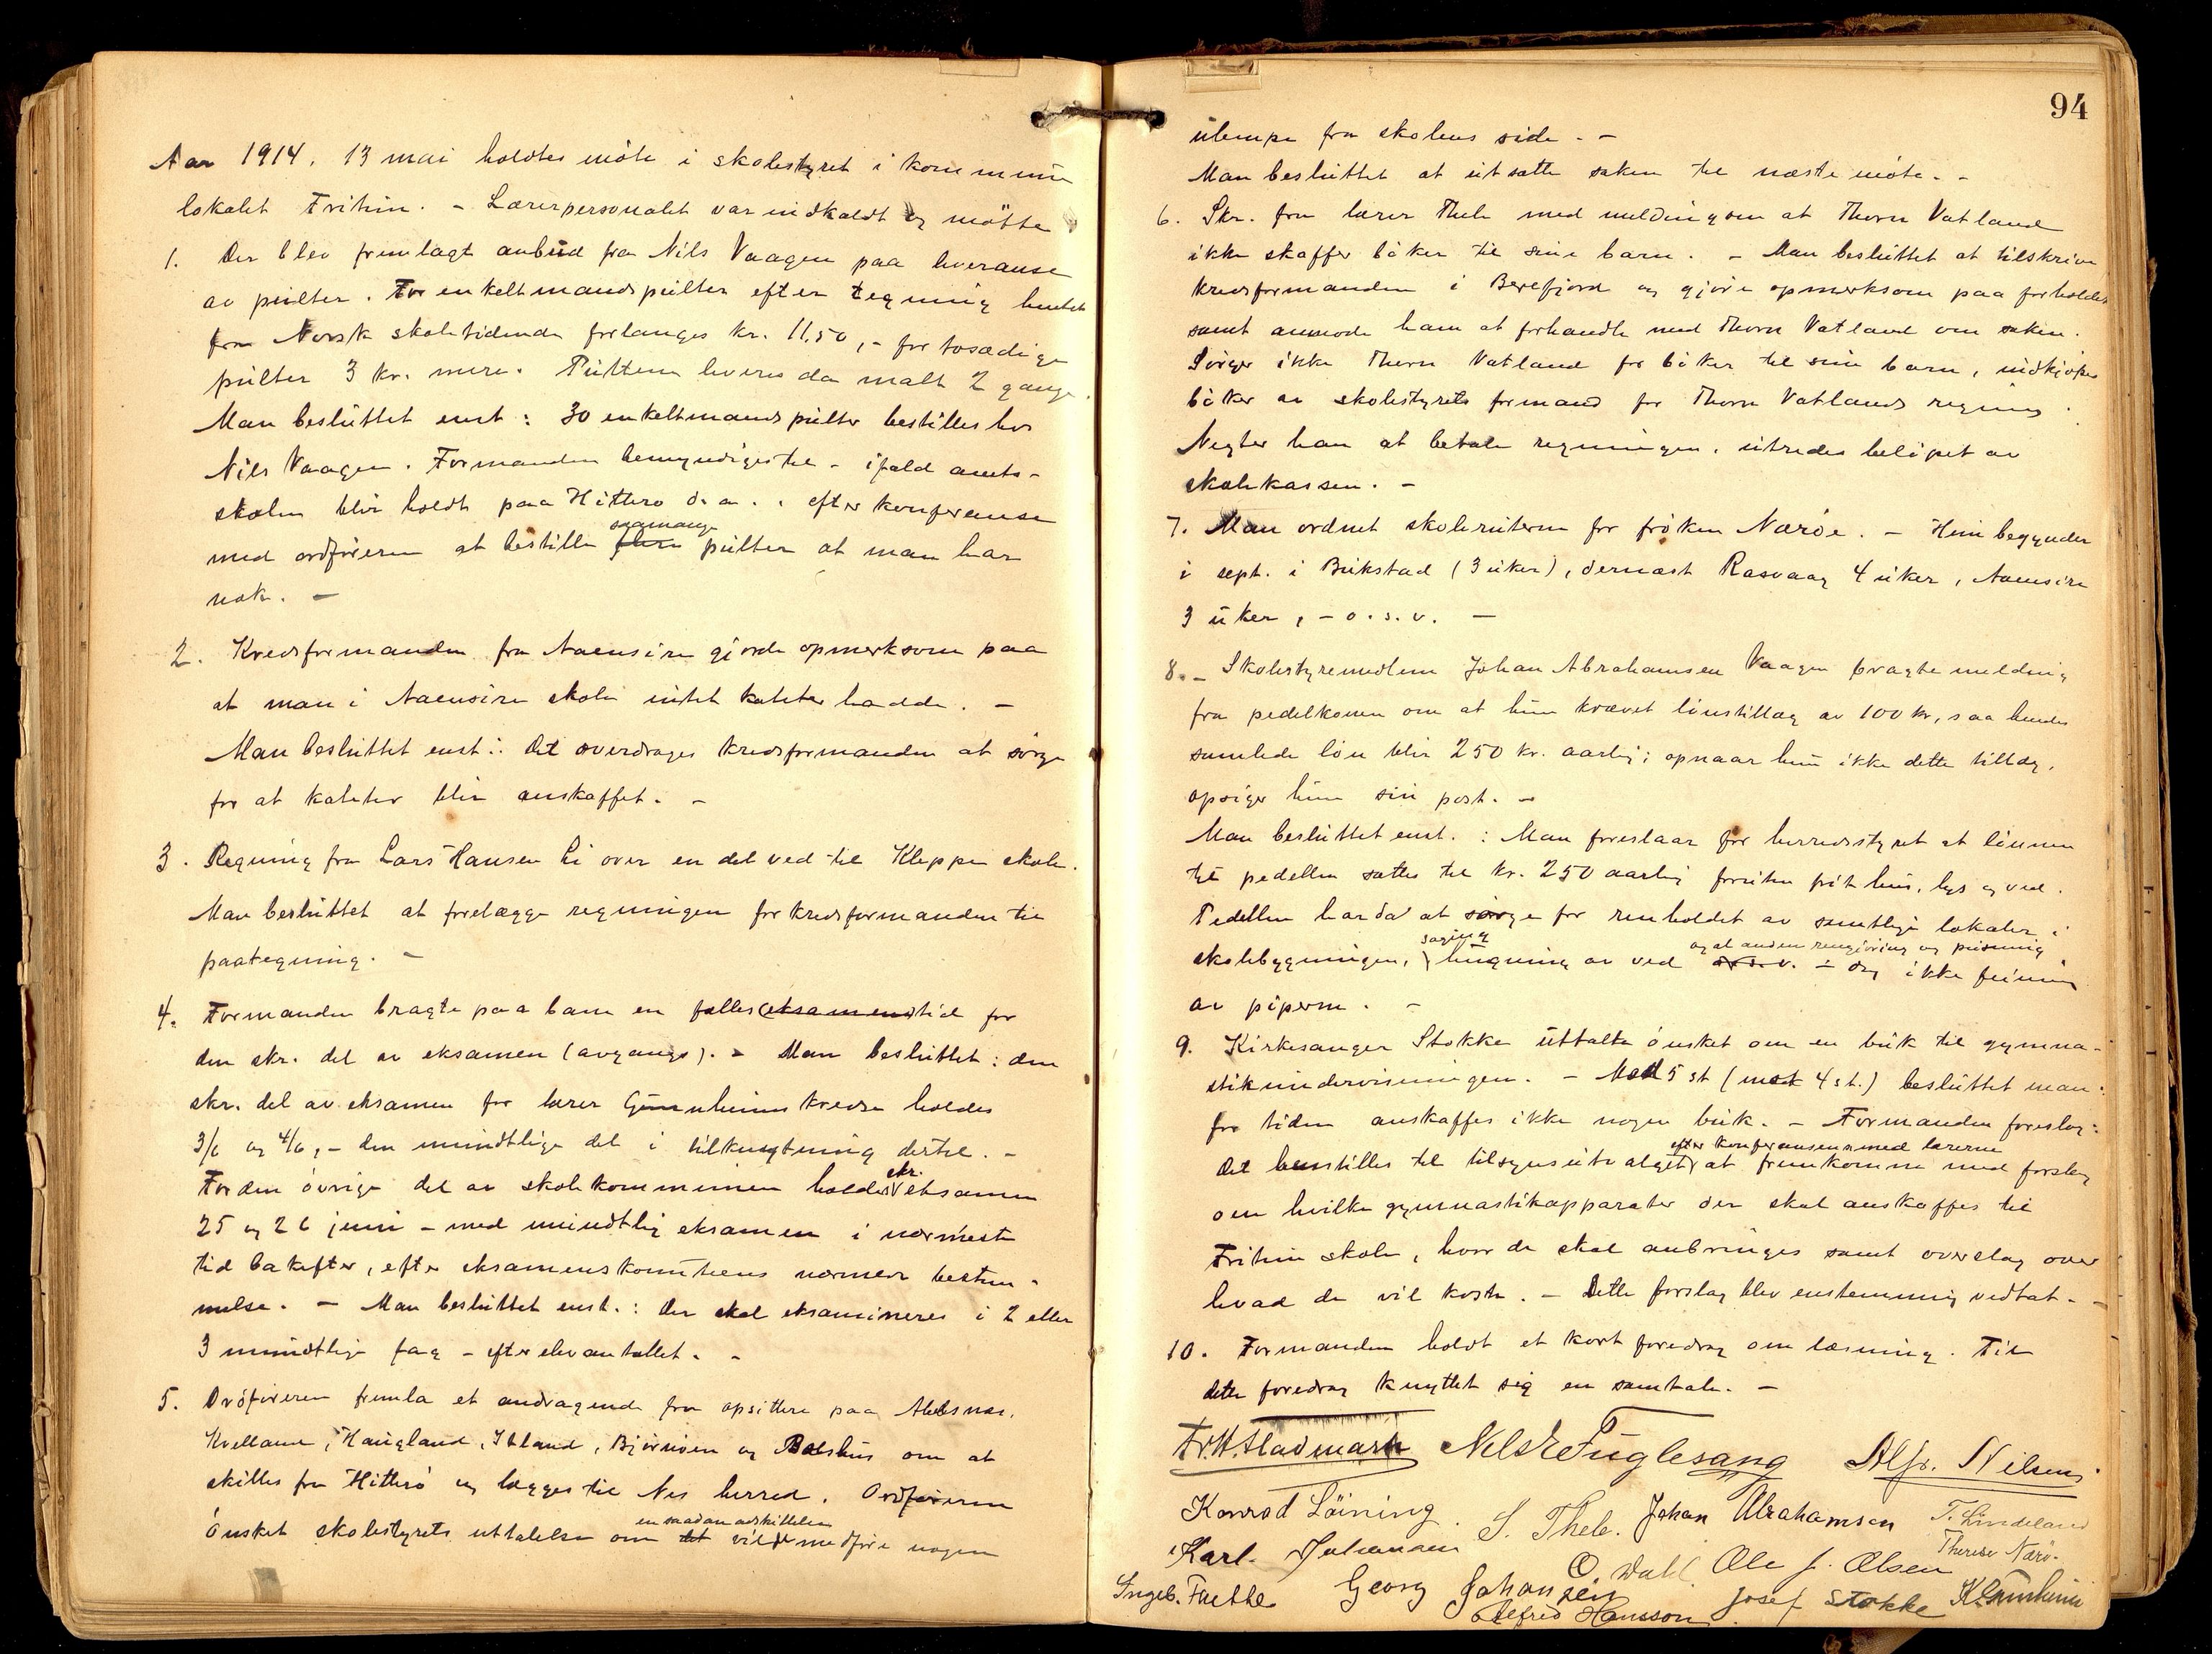 Aar 1914, 13 mai holdtes møte i skolestyret i kommune
lokalet Fritun. - Lærerpersonalet var indkaldt og møtte
1. Der blev fremlagt anbud fra Nils Vaagen paa leveranse
av pulter. For enkeltmandspulter efter tegning hentet
fra Norsk skoletidende forlanges kr. 11,50, - for tosædige
pulter 3 kr. mere. Pultene leveres da malt 2 gange.
Man besluttet enst: 30 enkeltmandspulter bestilles hos
Nils Vaagen. Formanden bemyndiges til - ifald amts-
skolen blir holdt paa Hitterø d. a. - efter konferanse
med ordføreren at bestille saamange pulter at man har
nok. -
2. Kredsformanden fra Aaensire gjorde opmerksom paa
at man i Aaensire skole intet kateter hadde. -
Man besluttet enst: Det overdrages kredsformanden at sørge
for at kateter blir anskaffet. -
3. Regning fra Lars Hansen Li over en del ved til Kleppe skole.
Man besluttet at forelægge regningen for kredsformanden til
paategning. -
4. Formanden bragte paa bane en fælles (eksamens)tid for
den skr. del av eksamen (avgangs). - Man besluttet: den
skr. del av eksamen for lærer Gunnheims kredse holdes
3/6 og 4/6, - den mundtlige del i tilknytning dertil. -
For den øvrige del av skolekommunen holdes skr. eksamen
25 og 26 juni - med mundtlig eksamen i nærmeste
tid bakefter, efter eksamenskomiteens nærmere bestem-
melse. - Man besluttet enst.: Der skal eksamineres i 2 eller
3 mundtlige fag - efter elevantallet. -
5. Ordføreren fremla et andragende fra opsittere paa Abelsnæs,
Kvelland, Haugland, Itland, Bjørnøen og Batshus om at
skilles fra Hitterø og lægges til Nes herred. Ordføreren
ønsket skolestyrets uttalelse om en saadan adskillelse vilde medføre nogen
94
ulempe fra skolens side. -
Man besluttet at utsætte saken til næste møte. -
6. Skr. fra lærer Thele med melding om at Thorn Vatland
ikke skaffer bøker til sine barn. - Man besluttet at tilskrive
kredsformanden i Berefjord og gjøre opmerksom paa forholdet
samt anmode ham at forhandle med Thorn Vatland om saken.
Sørger ikke Thorn Vatland for bøker til sine barn, indkjøpes
bøker av skolestyrets formand for Thorn Vatlands regning.
Negter han at betale regningen, utredes beløpet av
skolekassen. -
7. Man ordnet skoleruterne for frøken Nærøe. - Hun begynder
i sept. i Bukstad (3 uker), dernæst Rasvaag 4 uker, Aaensire
3 uker, - o. s. v. -
8. - Skolestyremedlem Johan Abrahamsen Vaagen bragte melding
fra pedelkonen om at hun krævet lønstillæg av 100 kr, saa hendes
samlede løn blir 250 kr. aarlig; opnaar hun ikke dette tillæg,
opsiger hun sin post. -
Man besluttet enst.: Man foreslaar for herredsstyret at lønnen
til pedellen sættes til kr. 250 aarlig foruten frit hus, lys og ved.
Pedellen har da at sørge for renholdet av samtlige lokaler i
skolebygningen, saging hugning av ved og al anden rengjøring og pudsning o. s. v. - dog ikke feining
av piperne. -
9. Kirkesanger Stokke uttalte ønsket om en buk til gymna-
stikundervisningen. - Med 5 st (mot 4 st.) besluttet man:
for tiden anskaffes ikke nogen buk. - Formanden foreslog:
Det henstilles til tilsynsutvalget efter konferansen med lærerne at fremkomme med forslag
om hvilke gymnastikapparater der skal anskaffes til
Fritun skole, hvor de skal anbringes samt overslag over
hvad de vil koste. - Dette forslag blev enstemmig vedtat. -
10. Formanden holdt et kort foredrag om læsning. Til
dette foredrag knyttet sig en samtale. -
Fr. W. Stadmark Nels Fuglesang Alfr. Nilsen
Konrad Løining. S. Thele. Johan Abrahamsen T. Lindeland
Karl Johansen O. Dahl Ole J. Olsen Therese Nærø.
Ingeb. Fuethe Georg Johansen Josef Stokke K. Gunnheim
Alfred Hansson.